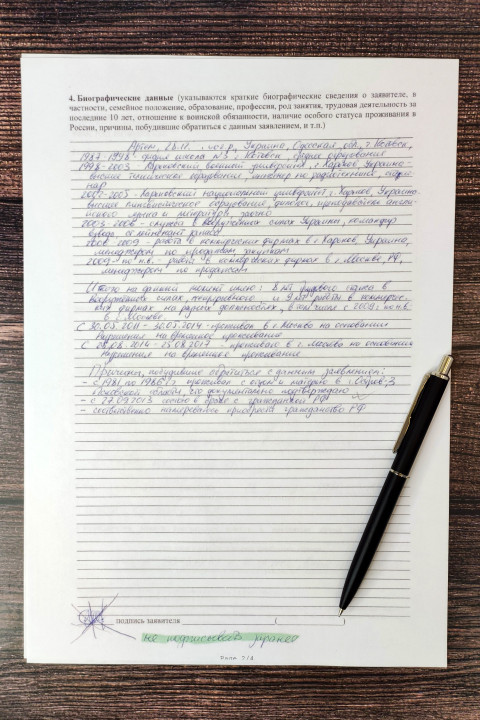 4. Биографические данные (указываются краткие биографические сведения о заявителе, в
частности, семейное положение, образование, профессия, род занятия, трудовая деятельность за
последние 10 лет, отношение к воинской обязанности, наличие особого статуса проживания в
России, причины, побудившие обратиться с данным заявлением, и т.п.)
28.11. г.р., Украина, Одесская обл., г. Котовск,
1987-1998 - школа №3 г. Котовск, среднее образование
1998-2003 - Харьковский военный университет, г. Харьков, Украина -
высшее техническое образование, инженер по радиотехнике,
2002-2005 - Харьковский национальный университет, г. Харьков, Украина -
высшее образование, филолог, преподаватель англий-
ского языка и литературы, заочно
2003-2006 - служба в Вооружённых силах Украины, командир
взвода,
2006-2009 - работа в коммерческих фирмах в г. Харьков, Украина,
менеджером по продажам,
2009 - по н.в. - работа в коммерческих фирмах в г. Москва, РФ,
менеджером по продажам
Итого на данный момент имею: 8 лет службы в
Вооружённых силах, и 9 лет работы в коммерчес-
ких фирмах на разных должностях, в том числе с 2009 г. по н.в.
в г. Москве.
С 30.05.2011 - 30.05.2014 - проживал в г. Москва на основании
Разрешения на временное проживание
С 25.08.2014 - 25.08.2017 - проживаю в г. Москва на основании
Разрешения на временное проживание
Причины, побудившие обратиться с данным заявлением:
- с 1981 по 1986 г. проживал с отцом и матерью в г. Остров-3
Псковской области, что документально подтверждаю
- с 27.09.2013 состою в браке с гражданкой РФ
- собственно намереваюсь приобрести гражданство РФ
подпись заявителя ( )
не подписывать заранее